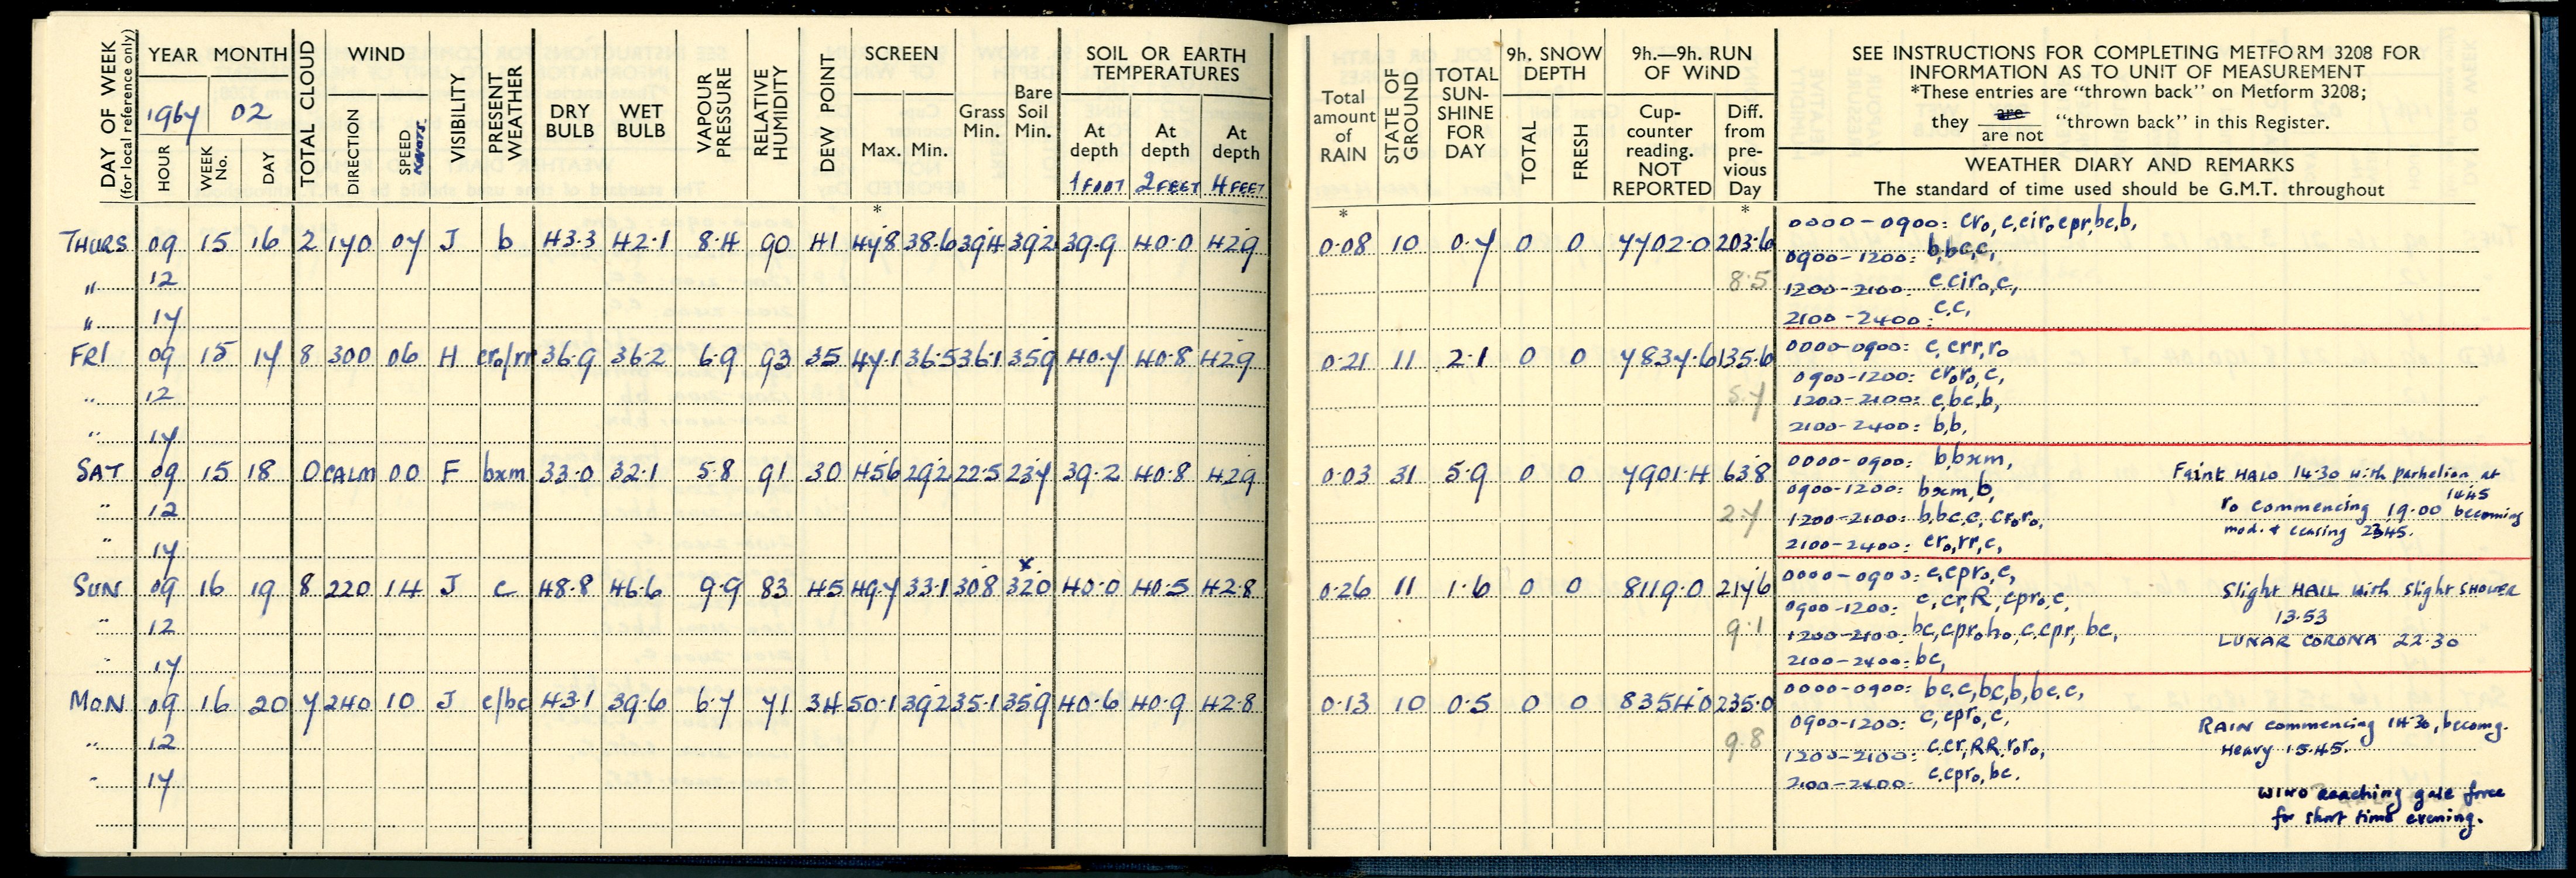 DAY OF WEEK (for local reference only)
YEAR MONTH
1967 02
HOUR WEEK No. DAY
TOTAL CLOUD
WIND
DIRECTION SPEED KNOTS
VISIBILITY
PRESENT WEATHER
DRY BULB
WET BULB
VAPOUR PRESSURE
RELATIVE HUMIDITY
DEW POINT
SCREEN
Max. Min.
*
Grass Min.
Bare Soil Min.
SOIL OR EARTH TEMPERATURES
At depth At depth At depth
1 FOOT 2 FEET 4 FEET
Total amount of RAIN
*
STATE OF GROUND
TOTAL SUN-SHINE FOR DAY
9h. SNOW DEPTH
TOTAL FRESH
9h.—9h. RUN OF WIND
Cup-counter reading. NOT REPORTED
Diff. from pre-vious Day
*
SEE INSTRUCTIONS FOR COMPLETING METFORM 3208 FOR
INFORMATION AS TO UNIT OF MEASUREMENT
*These entries are "thrown back" on Metform 3208;
they are / are not "thrown back" in this Register.
WEATHER DIARY AND REMARKS
The standard of time used should be G.M.T. throughout
THURS 09 15 16 2 170 07 J b 43.3 42.1 8.4 90 41 47.8 38.6 39.4 39.2 39.9 40.0 42.9 0.08 10 0.7 0 0 7702.0 203.6 0000-0900: cr₀, c, cir₀, cpr, bc, b,
0900-1200: b, bc, c,
" 12 8.5 1200-2100: c, cir₀, c,
" 17 2100-2400: c, c,
FRI 09 15 17 8 300 06 H cr₀/rr 36.9 36.2 6.9 93 35 47.1 36.5 36.1 35.9 40.7 40.8 42.9 0.21 11 2.1 0 0 7837.6 135.6 0000-0900: c, crr, r₀
0900-1200: cr₀r₀, c,
" 12 5.7 1200-2100: c, bc, b,
" 17 2100-2400: b, b,
SAT 09 15 18 0 CALM 00 F bxm 33.0 32.1 5.8 91 30 45.6 29.2 22.5 23.7 39.2 40.8 42.9 0.03 31 5.9 0 0 7901.4 63.8 0000-0900: b, bxm,
0900-1200: bxm, b,
" 12 2.7 1200-2100: b, bc, c, cr₀r₀,
" 17 2100-2400: cr₀, rr, c,
Faint HALO 14.30 with parhelion at
14.45
r₀ commencing 19.00 becoming
mod. & ceasing 2345.
SUN 09 16 19 8 220 14 J c 48.8 46.6 9.9 83 45 49.7 33.1 30.8 32.0 x 40.0 40.5 42.8 0.26 11 1.6 0 0 8119.0 217.6 0000-0900: c, cpr₀, c,
0900-1200: c, cr, R, cpr₀, c,
" 12 9.1 1200-2100: bc, cpr₀h₀, c, cpr, bc,
" 17 2100-2400: bc,
Slight HAIL with slight SHOWER
13.53
LUNAR CORONA 22.30
MON 09 16 20 7 240 10 J c/bc 43.1 39.6 6.7 71 34 50.1 39.2 35.1 35.9 40.6 40.9 42.8 0.13 10 0.5 0 0 8354.0 235.0 0000-0900: bc, c, bc, b, bc, c,
0900-1200: c, cpr₀, c,
" 12 9.8 1200-2100: c, cr, RR, r₀r₀,
" 17 2100-2400: c, cpr₀, bc.
RAIN commencing 14.30, becomg.
Heavy 15.45.
WIND reaching gale force
for short time evening.